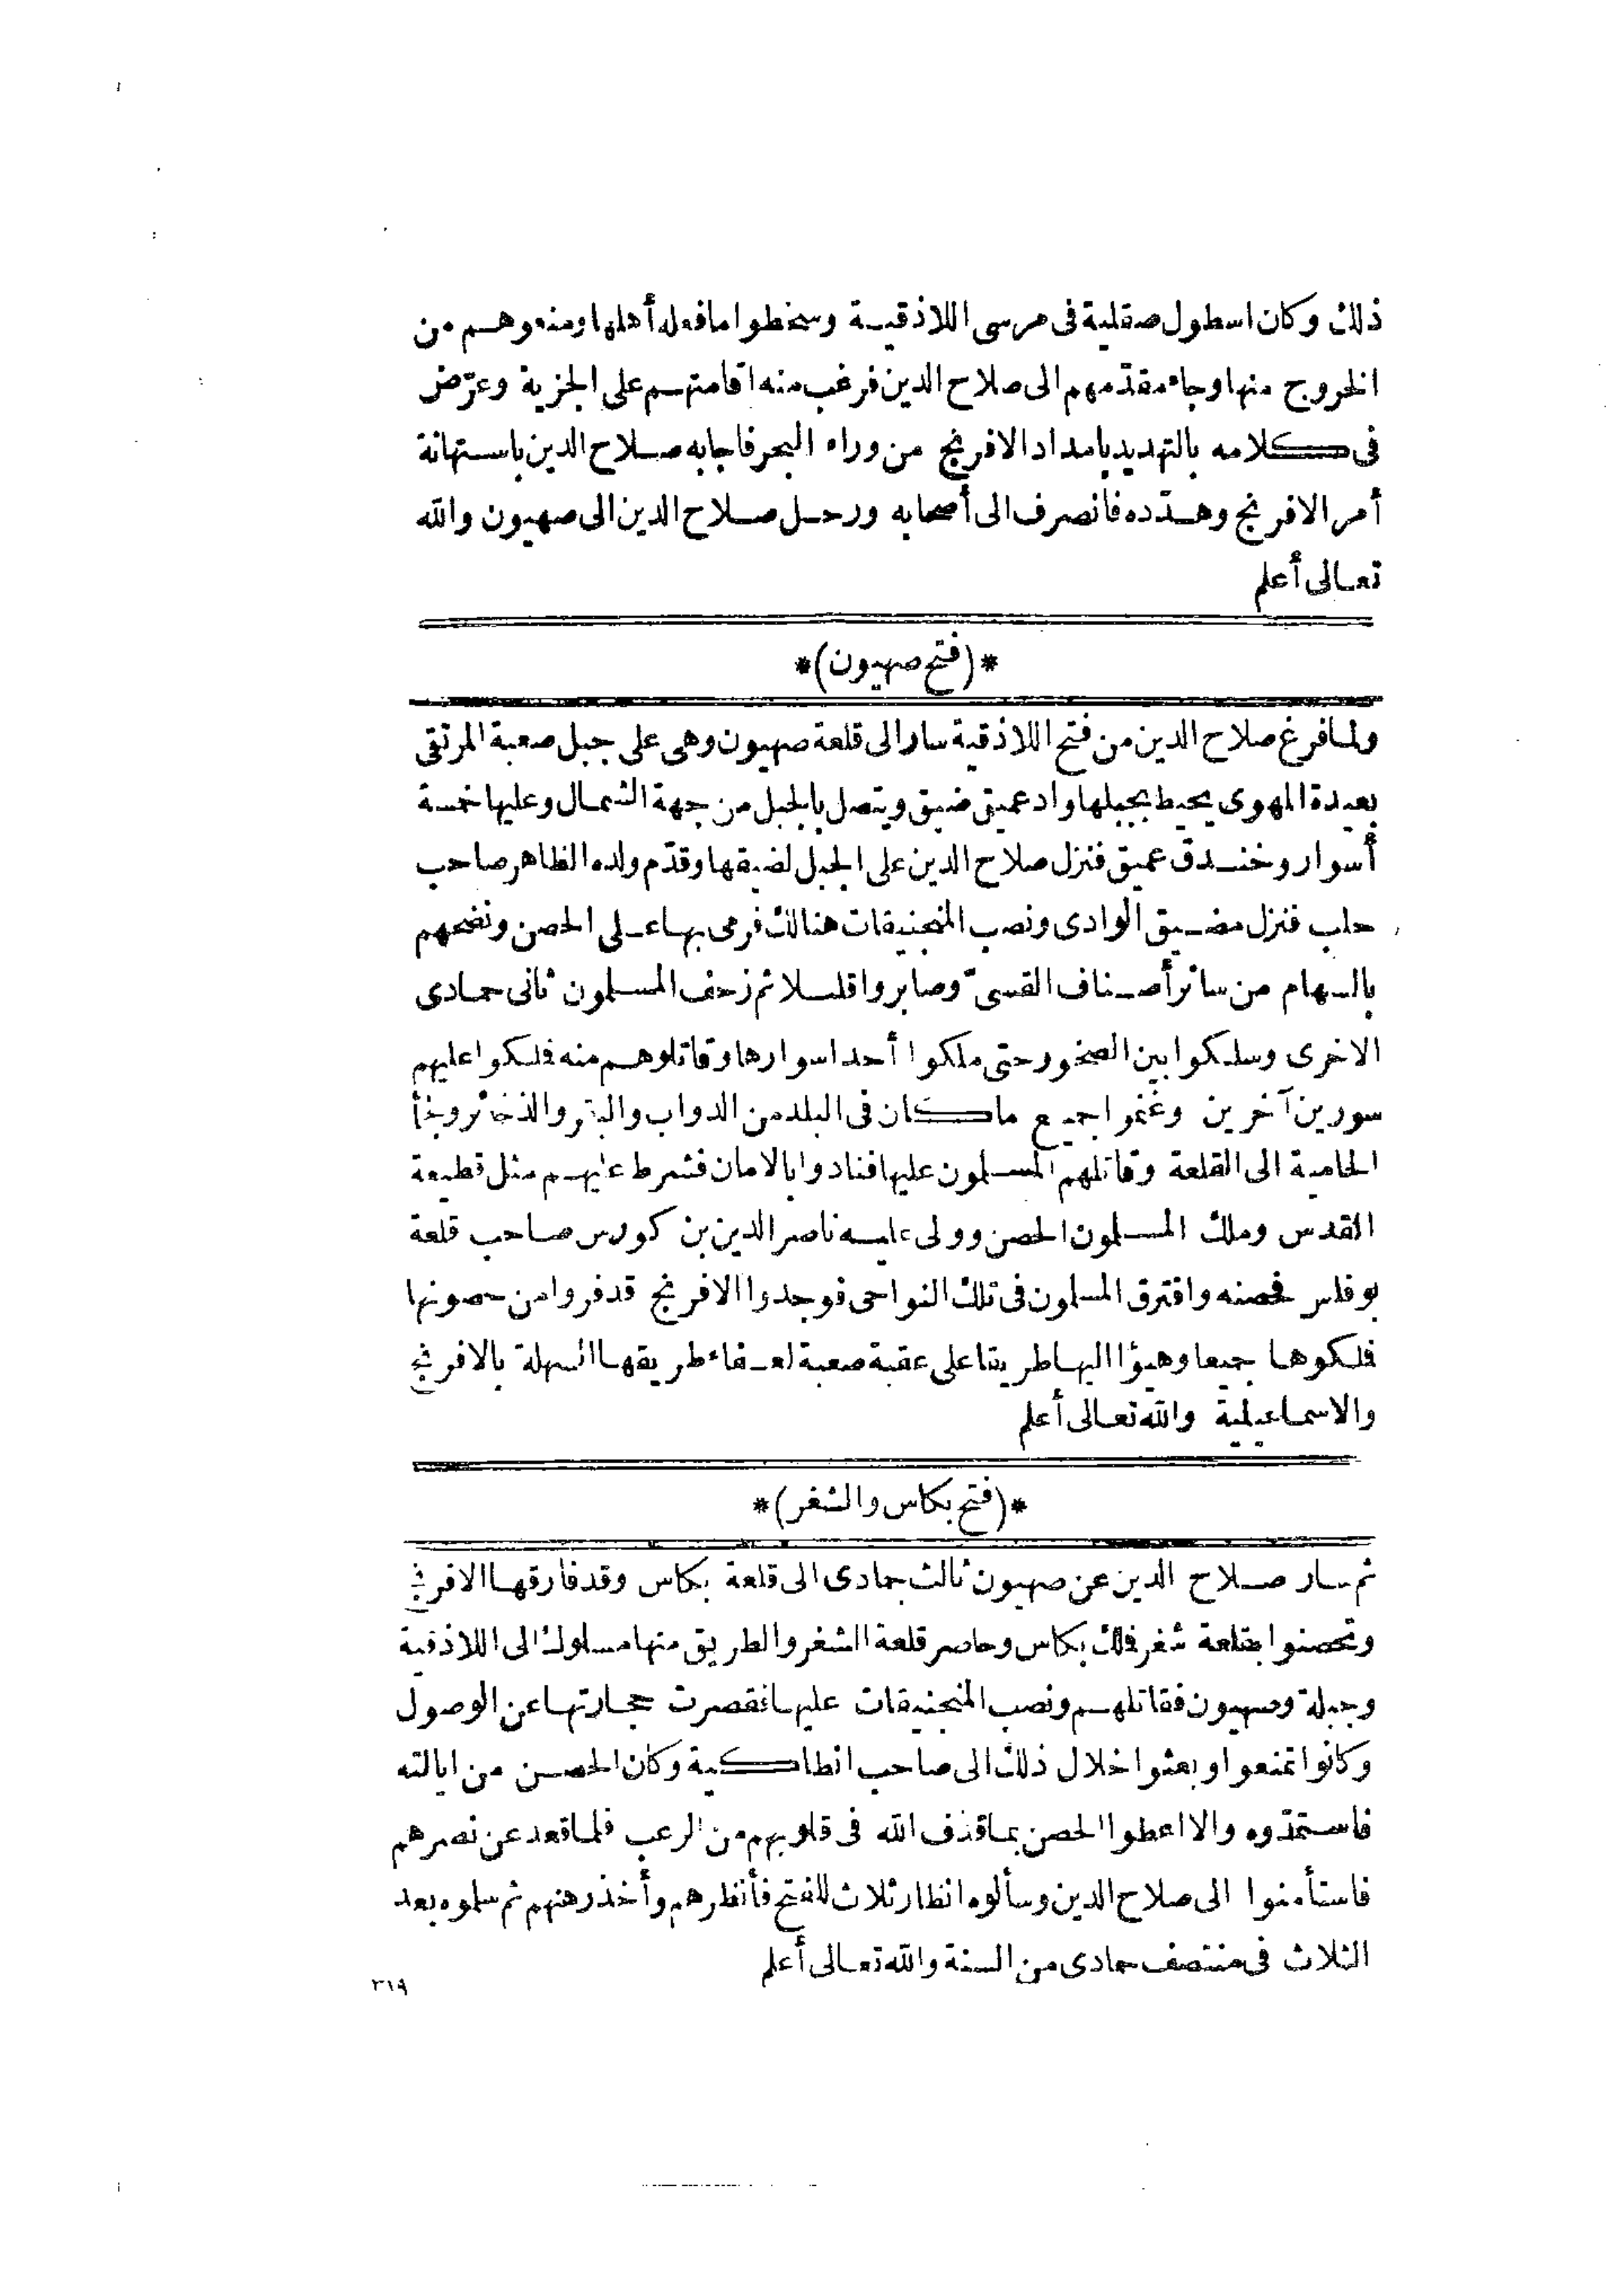 ذلك وكان اسطول صقلية فى مرسى اللاذقيـة وسخطوا ما فعله أهلها ومنعوهـم من
الخروج منها وجاء مقدّمهم الى صلاح الدين فرغب منه اقامتهـم على الجزية وعرّض
فى كلامه بالتهديد بامداد الافرنج من وراء البحر فاجابه صـلاح الدين باستهانة
أمر الافرنج وهـدّده فانصرف الى أصحابه ورحـل صـلاح الدين الى صهيون والله
تعـالى أعلم
*(فتح صهيون)*
ولما فرغ صلاح الدين من فتح اللاذقية سار الى قلعة صهيون وهى على جبل صعبة المرتقى
بعيدة المهوى يحيط بجبلها واد عميق ضيق ويتصل بالجبل من جهة الشمـال وعليها خمسة
أسوار وخنـدق عميق فنزل صلاح الدين على الجبل لضيقها وقدّم ولده الظاهر صاحب
حلب فنزل مضـيق الوادى ونصب المنجنيقات هنالك فرمى بها عـلى الحصن ونضحهم
بالسهام من سائر أصـناف القسىّ وصابروا قليـلا ثم زحف المسـلمون ثانى جمـادى
الاخرى وسلكوا بين الصخور حتى ملكوا أحد اسوارها وقاتلوهـم منه فملكوا عليهم
سورين آخرين وغنموا جميع ما كان فى البلد من الدواب والبقر والذخائر ولجأ
الحامية الى القلعة وقاتلهم المسـلمون عليها فنادوا بالامان فشرط عليهـم مثل قطيعة
القدس وملك المسـلمون الحصن وولى عليـه ناصر الدين بن كورس صـاحب قلعة
بوفلس فحصنه وافترق المسلمون فى تلك النواحى فوجدوا الافرنج قد فروا من حصونها
فملكوها جميعا وهيؤا اليها طريقا على عقبة صعبة لعـفاء طريقهـا السهلة بالافرنج
والاسماعيلية والله تعـالى أعلم
*(فتح بكاس والشغر)*
ثم سـار صـلاح الدين عن صهيون ثالث جمادى الى قلعة بكاس وقد فارقهـا الافرنج
وتحصنوا بقلعة شغر فملك بكاس وحاصر قلعة الشغر والطريق منها مسلوك الى اللاذقية
وجبلة وصهيون فقاتلهـم ونصب المنجنيقات عليهـا فقصرت حجـارتهـا عن الوصول
وكانوا تمنعوا وبعثوا خلال ذلك الى صاحب انطاكية وكان الحصـن من ايالته
فاسـتمدّوه والا اعطوا الحصن بمـا قذف الله فى قلوبهم من الرعب فلما قعد عن نصرهم
فاستأمنوا الى صلاح الدين وسألوه انظار ثلاث للفتح فأنظرهم وأخذ رهنهم ثم سلموه بعد
الثلاث فى منتصف جمادى من السنة والله تعـالى أعلم
٣١٩